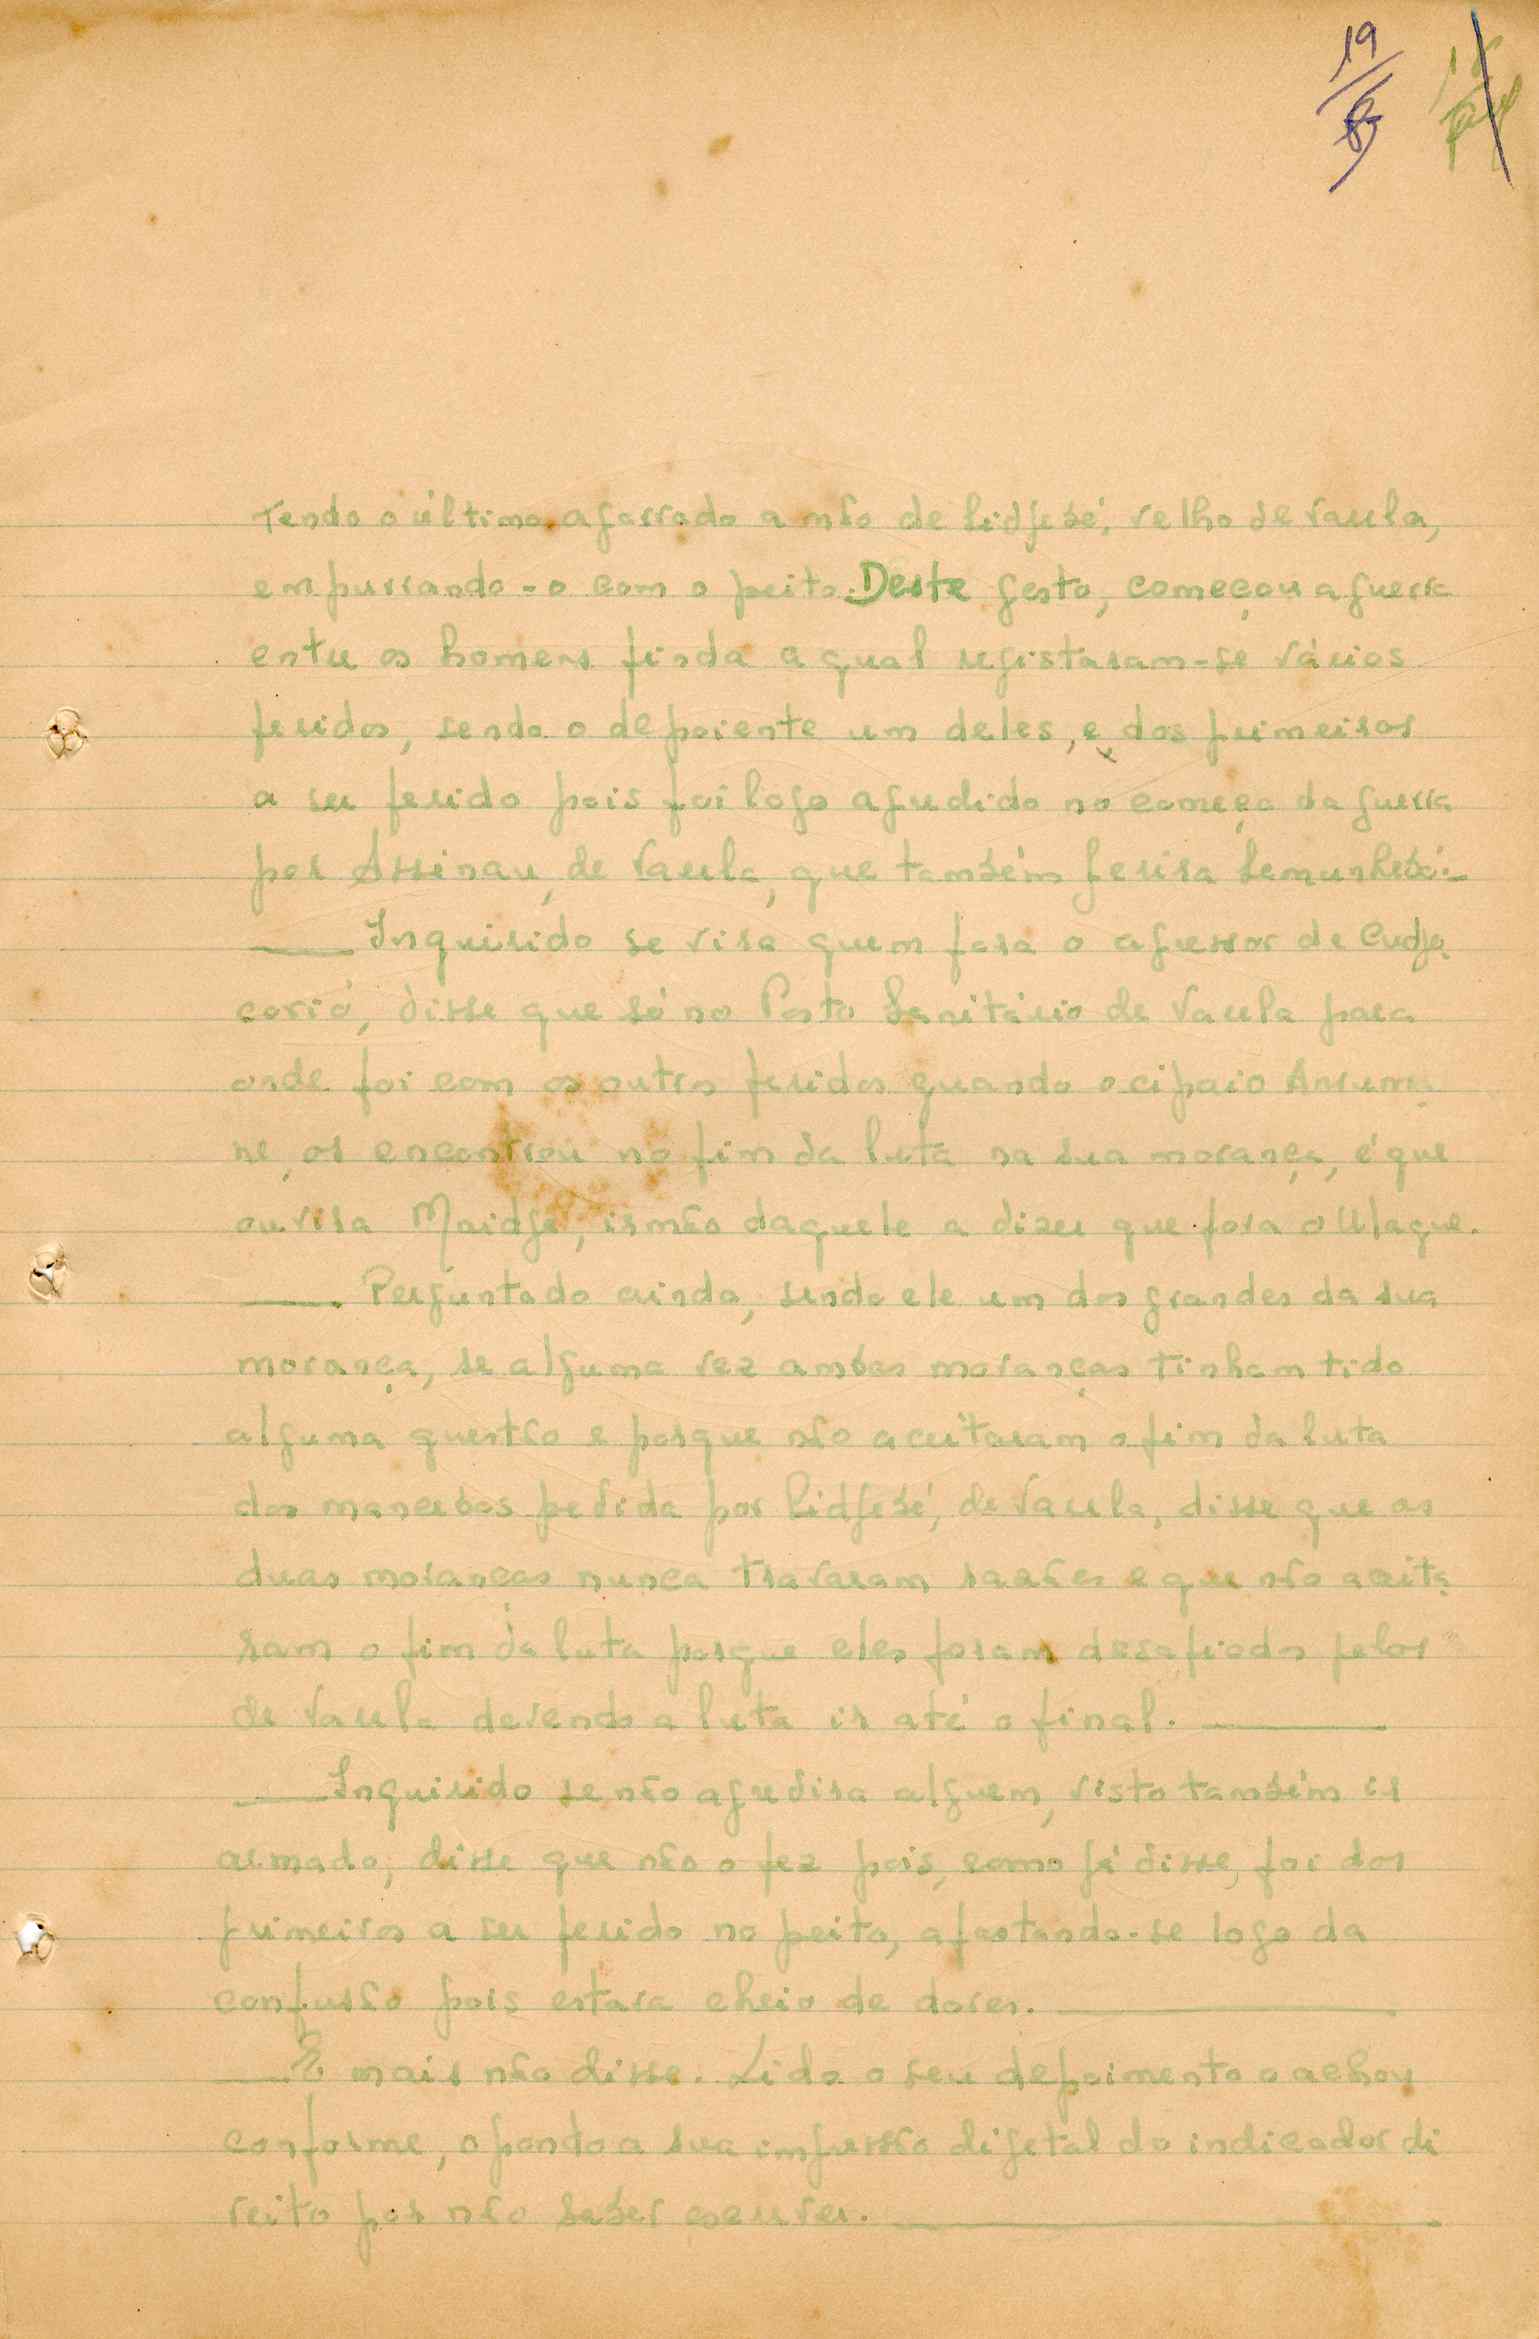 19
Tendo o último agarrado a mão de Lidjebé, velho de Varela,
empurrando-o com o peito. Deste gesto, começou a guerra
entre os homens finda a qual registaram-se vários
feridos, sendo o depoiente um deles, e dos primeiros
a ser ferido pois foi logo agredido no começo da guerra
por Assinau, de Varela, que também ferira Semunhebó.-
Inquirido se vira quem fora o agressor de Cudja
corió, disse que só no Posto Sanitário de Varela para
onde foi com os outros feridos quando o cipaio Ansuma
né, os encontrou no fim da luta na sua morança, é que
ouvira Maidjé, irmão daquele a dizer que fora o Ulaque.
Perguntado ainda, sendo ele um dos grandes da sua
morança, se alguma vez ambas moranças tinham tido
alguma questão e porque não aceitaram o fim da luta
dos mancebos pedida por Lidjebé, de Varela, disse que as
duas moranças nunca travaram razões e que não aceita
ram o fim da luta porque eles foram desafiados pelos
de Varela devendo a luta ir até o final.
Inquirido se não agredira alguem, visto também ir
armado, disse que não o fez pois, como já disse, foi dos
primeiros a ser ferido no peito, afastando-se logo da
confusão pois estava cheio de dores.
E mais não disse. Lido o seu depoimento o achou
conforme, opondo a sua impressão digetal do indicador di
reito por não saber escrever.